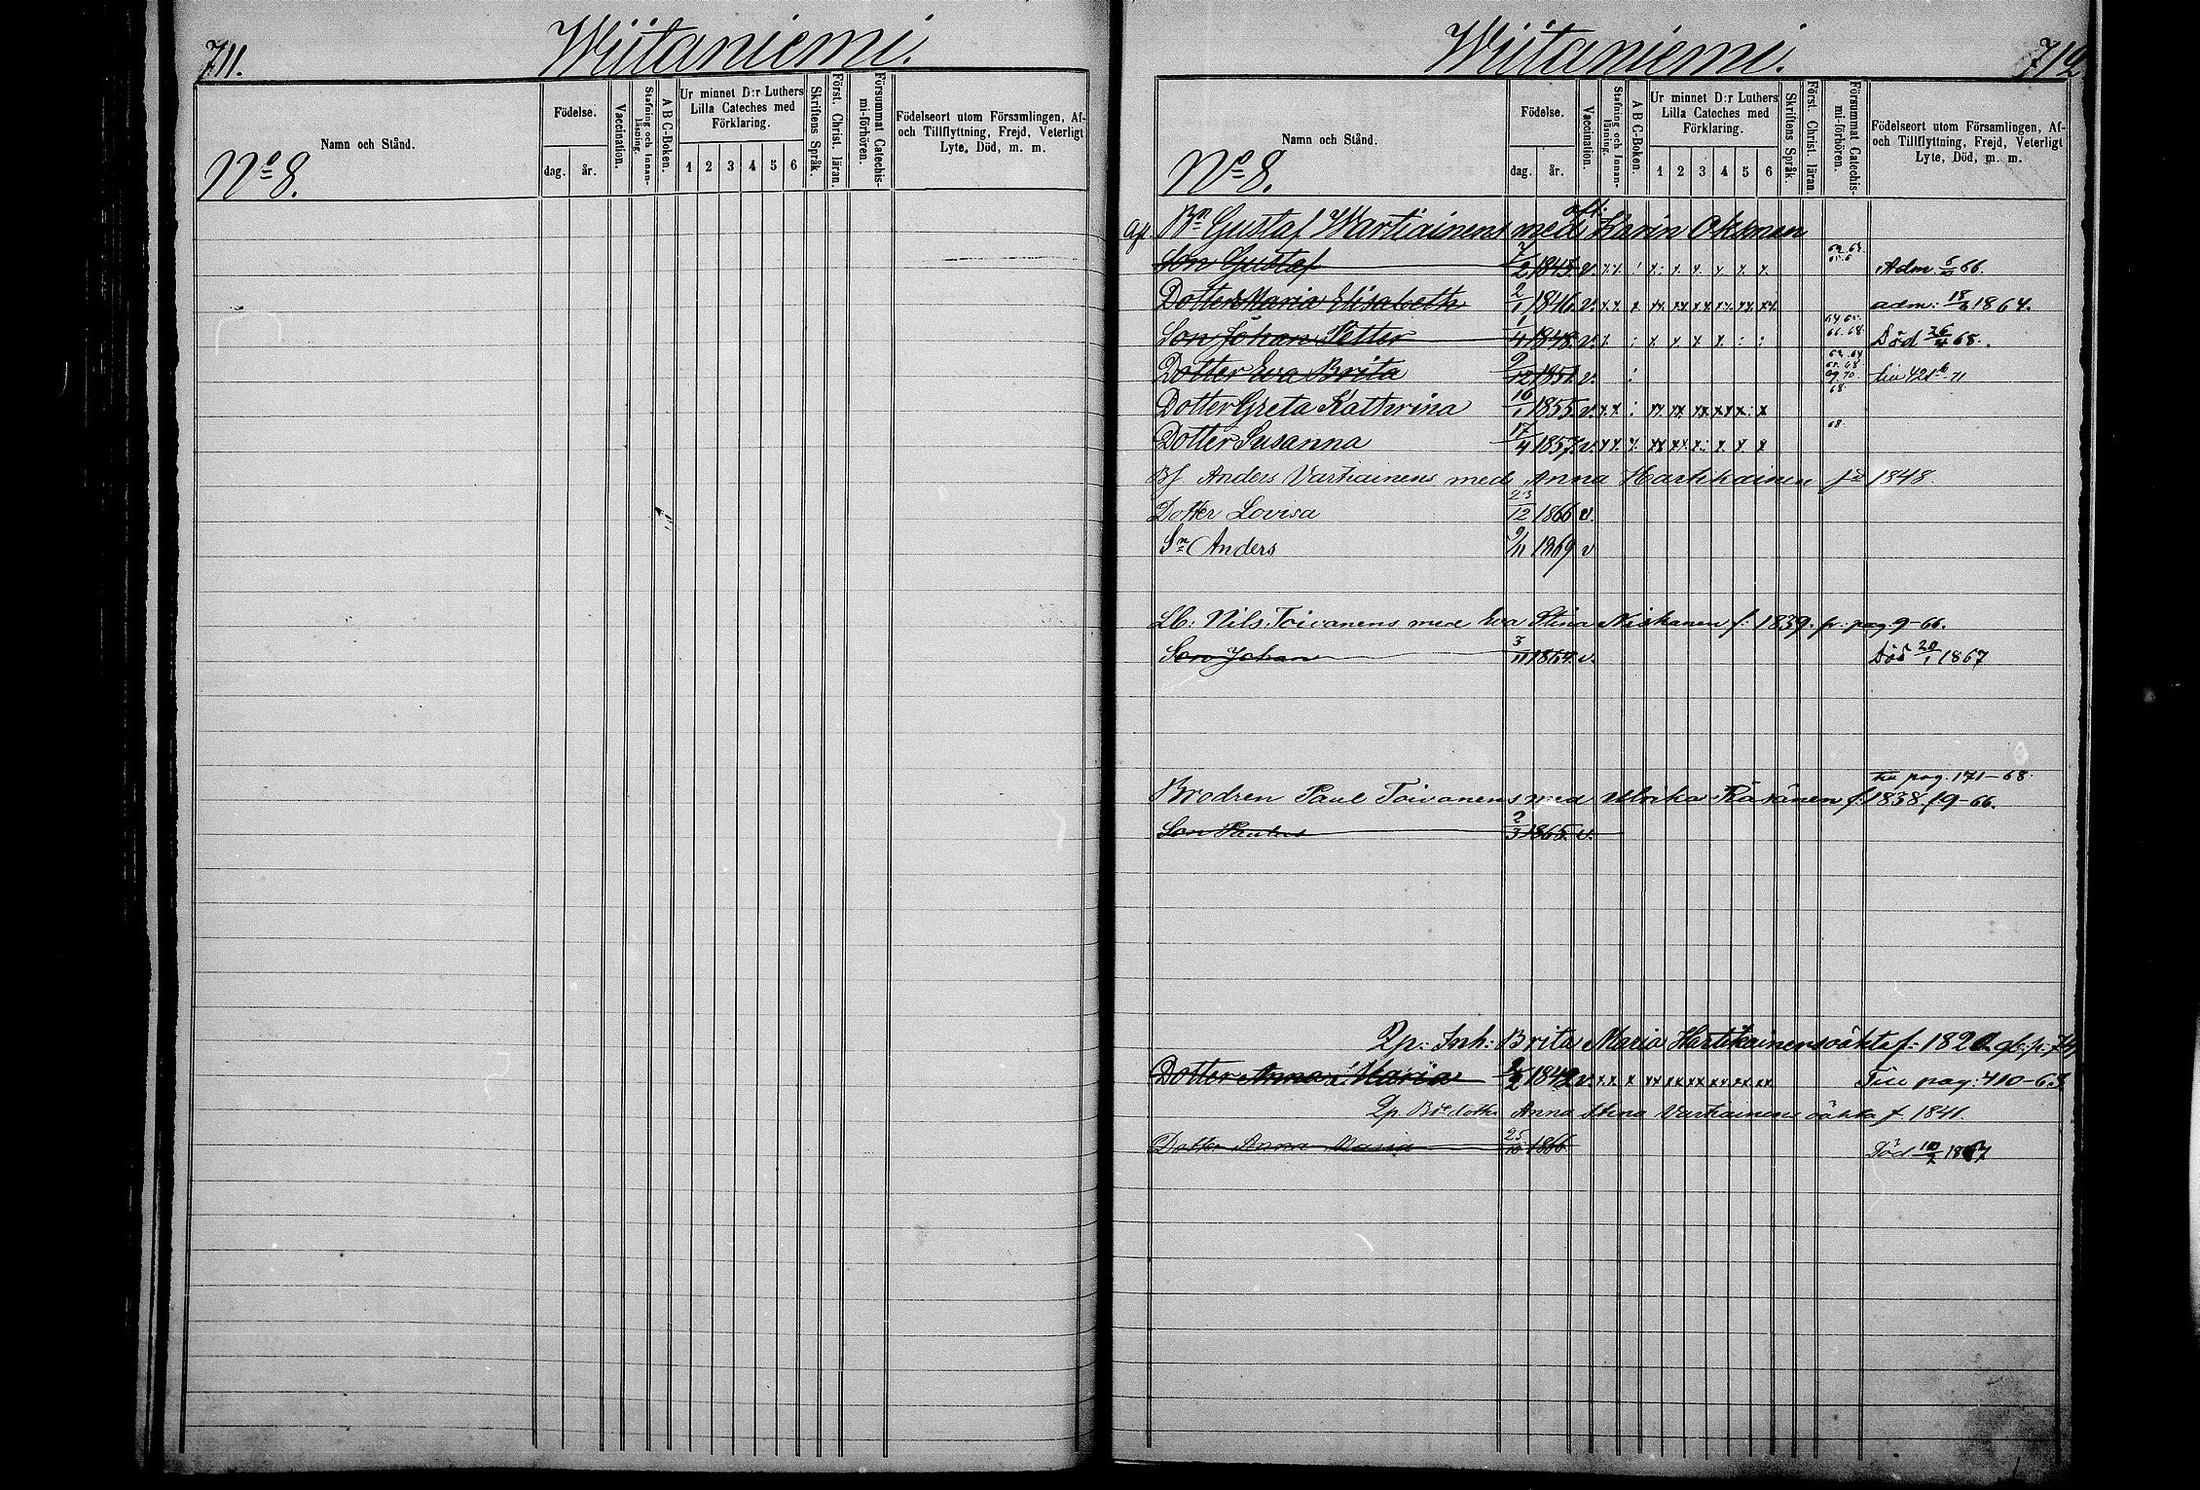 711.
Wiitaniemi.
Namn och Stånd.
No 8.
Födelse.
dag.
år.
Vaccination.
Stafning och Innan-
läsning.
A B C-Boken.
Ur minnet D:r Luthers
Lilla Cateches med
Förklaring.
1 2 3 4 5 6
Skriftens Språk.
Först. Christ. läran.
Försummat Catechis-
mi-förhören.
Födelseort utom Församlingen, Af-
och Tillflyttning, Frejd, Veterligt
Lyte, Död, m. m.
Wiitaniemi.
712
Namn och Stånd.
No 8.
Födelse.
dag.
år.
Vaccination.
Stafning och Innan-
läsning.
A B C-Boken.
Ur minnet D:r Luthers
Lilla Cateches med
Förklaring.
1 2 3 4 5 6
Skriftens Språk.
Först. Christ. läran.
Försummat Catechis-
mi-förhören.
Födelseort utom Församlingen, Af-
och Tillflyttning, Frejd, Veterligt
Lyte, Död, m. m.
Bn Gustaf Wartiainens med Karin Oksman
Son Gustaf v. Adm. 66.
Dotter Maria Elisabeth 2/1 1846 v. adm: 1864.
Son Johan Petter 1/4 1848 v. Död 26/4 68.
Dotter Eva Brita 9/12 1851 v.
Dotter Greta Kathrina 16/1 1855 v. 68.
Dotter Susanna 17/4 1857 v. 68.
Anders Vartiainens med Anna Hartikainen 1848.
Dotter Lovisa 23/12 1866 v.
Sn Anders 9/11 1869 v
Lb: Nils Toivanens med Eva Stina Niskanen f: 1839. fr: pag 9-66.
Son Johan 3/11 1864. v. Död 20/1 1867
till pag. 171-68.
Brodren Paul Toivanens med Ulrika Räsänen f. 1838. f9-66.
Son Paulus 2/3 1865. v.
Inh: Brita Maria Hartikainens oäkta f:
Dotter Anna Maria 1842 v. Till pag: 410-63
Anna Stina Vartiainens oäkta f. 1841.
Dotter Anna Maria 25/10 1866 Död 1867